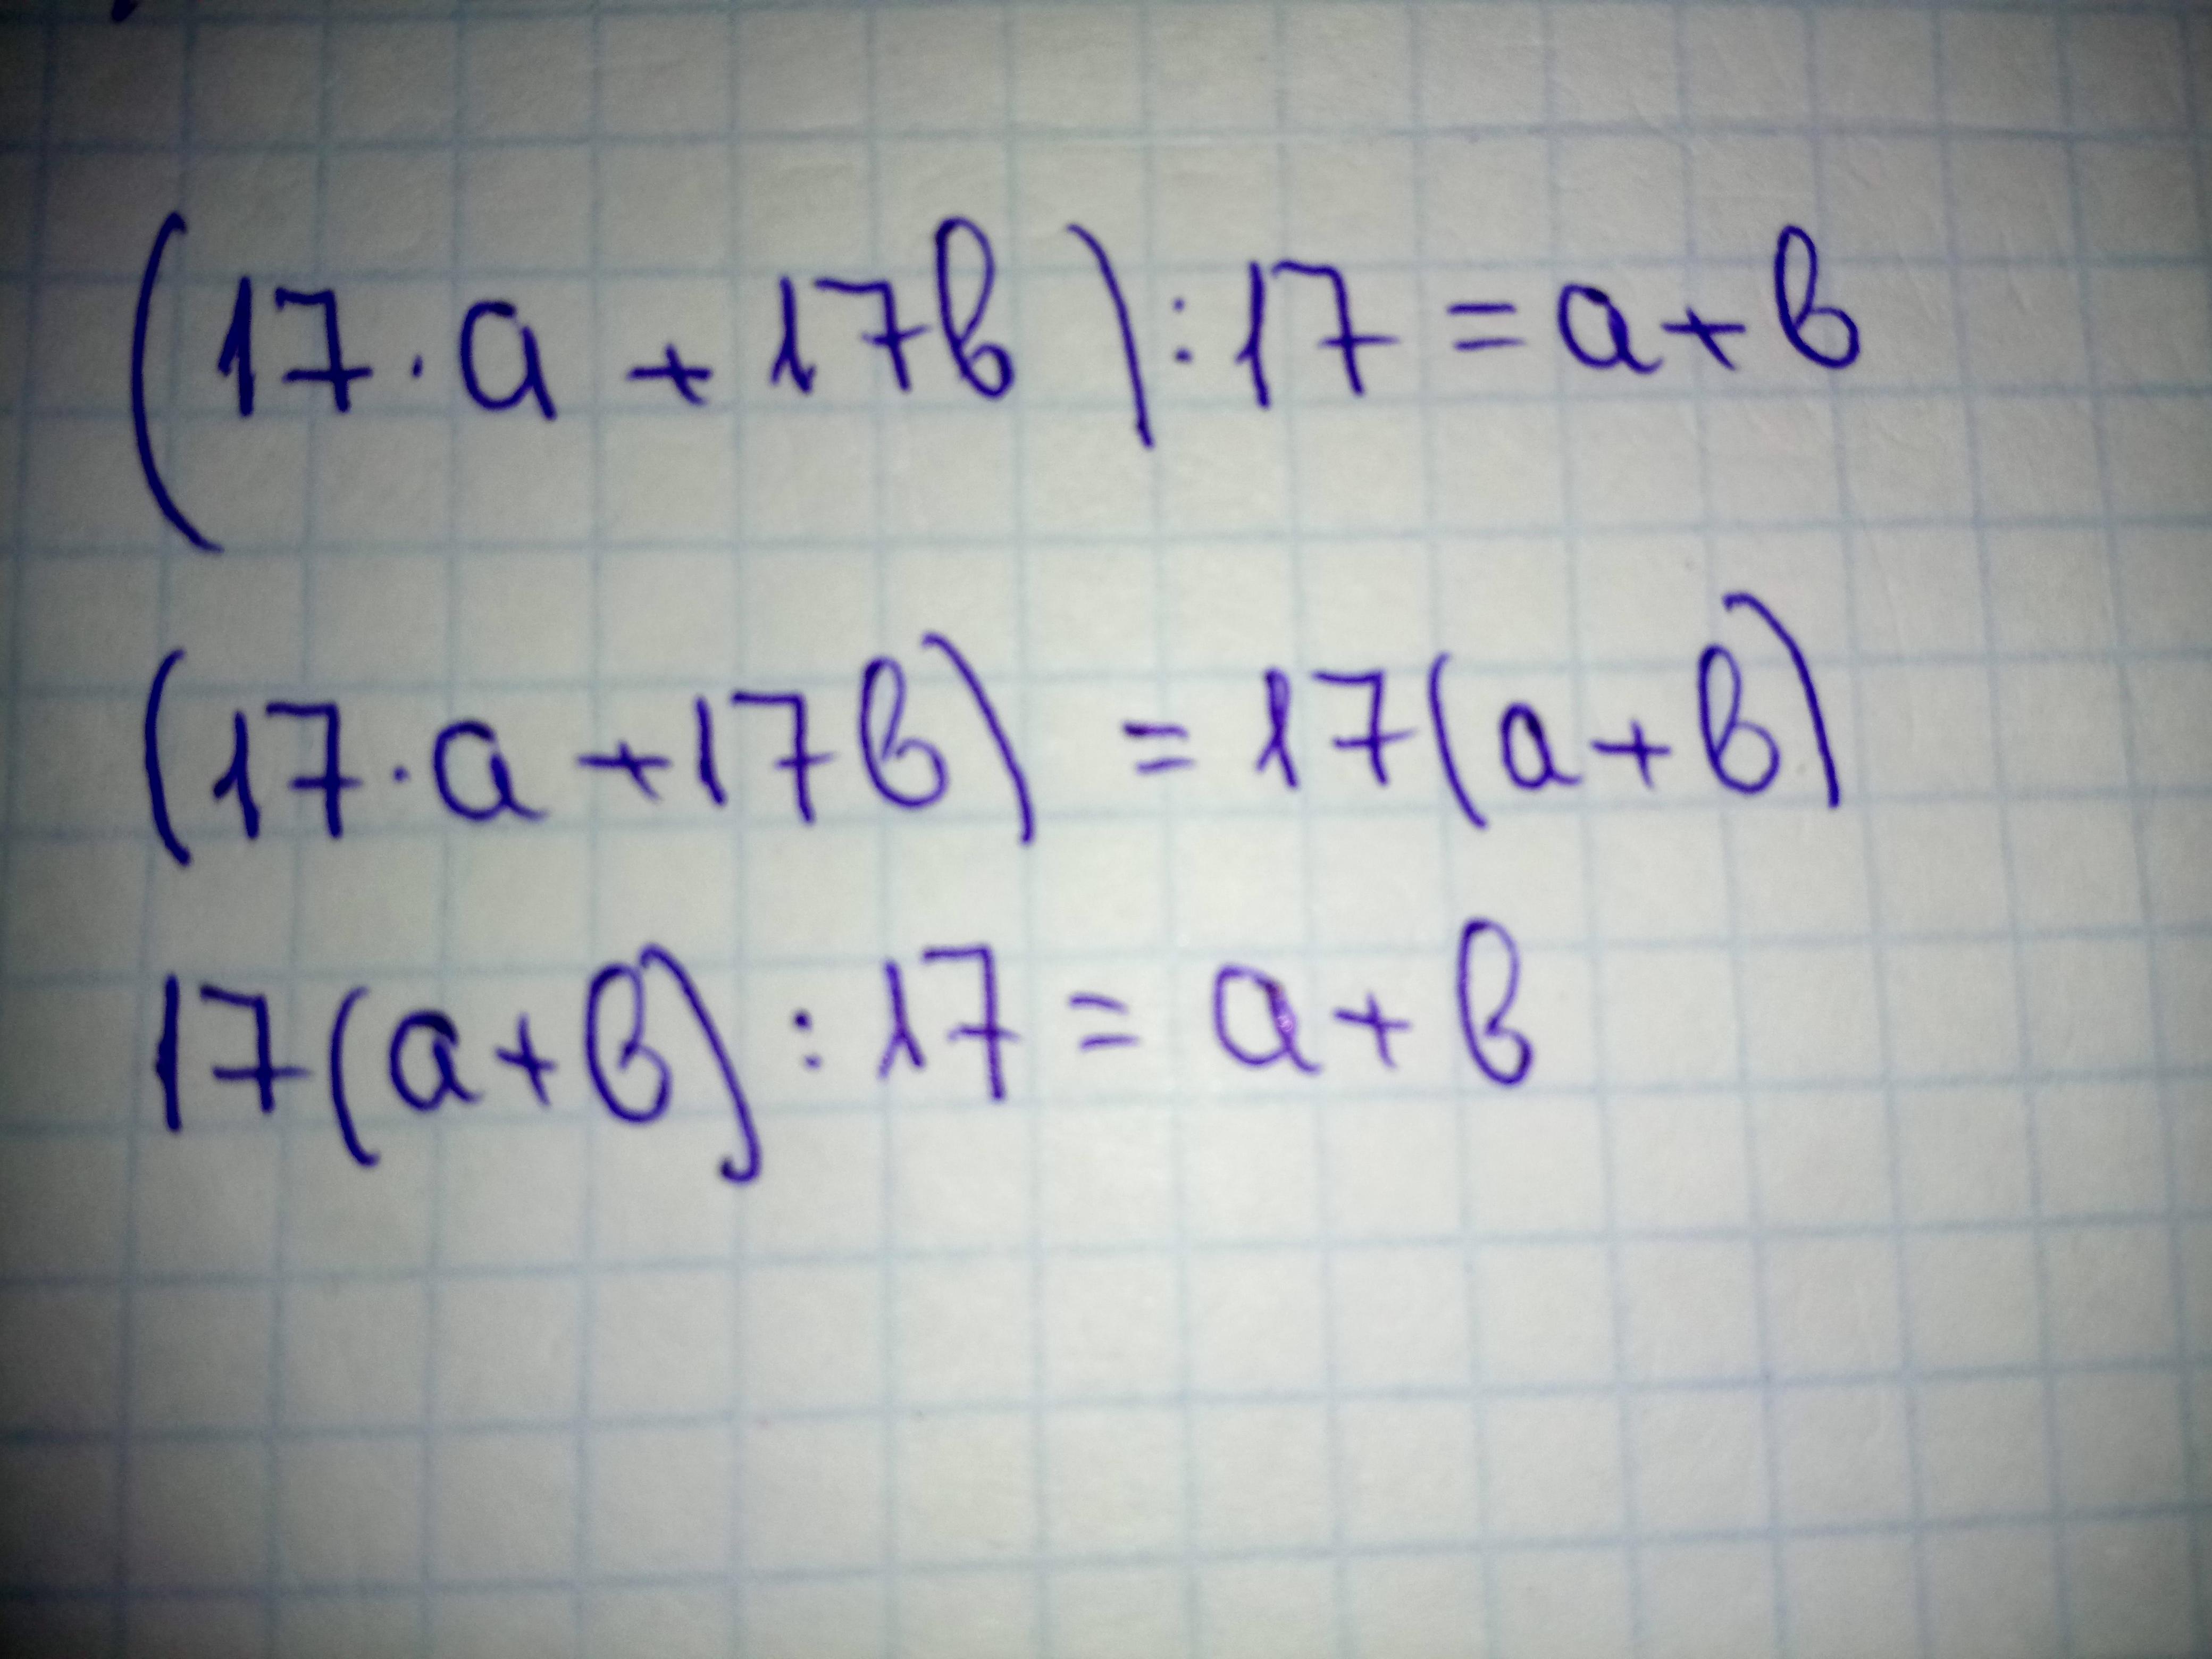 (17·a + 17b):17 = a+b
(17·a+17b) = 17(a+b)
17(a+b):17 = a+b